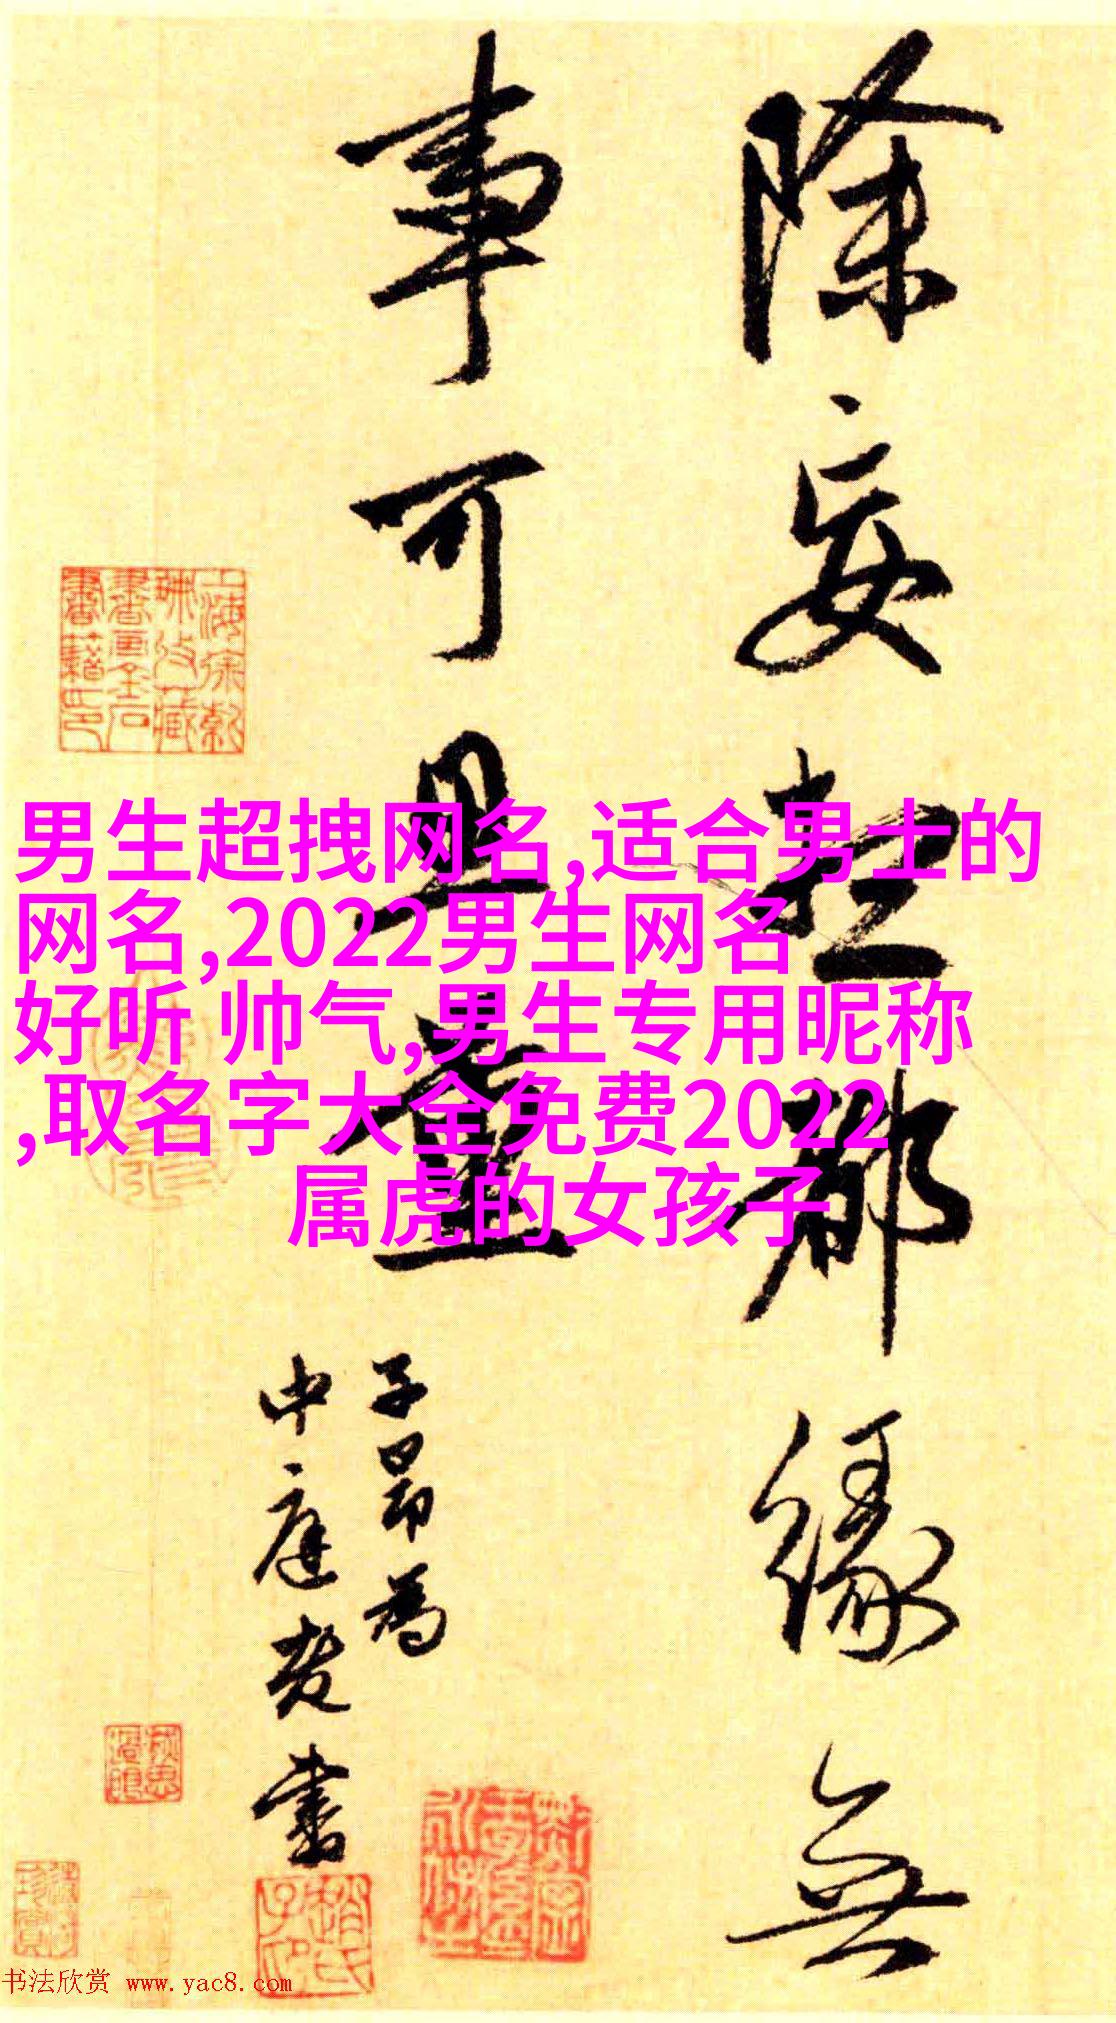 除妄想都緣無
事可思量
子昂為
中庭老書
男生超拽网名,适合男士的
网名,2022男生网名
好听 帅气,男生专用昵称
,取名字大全免费2022
属虎的女孩子
书法欣赏 www.yac8.com